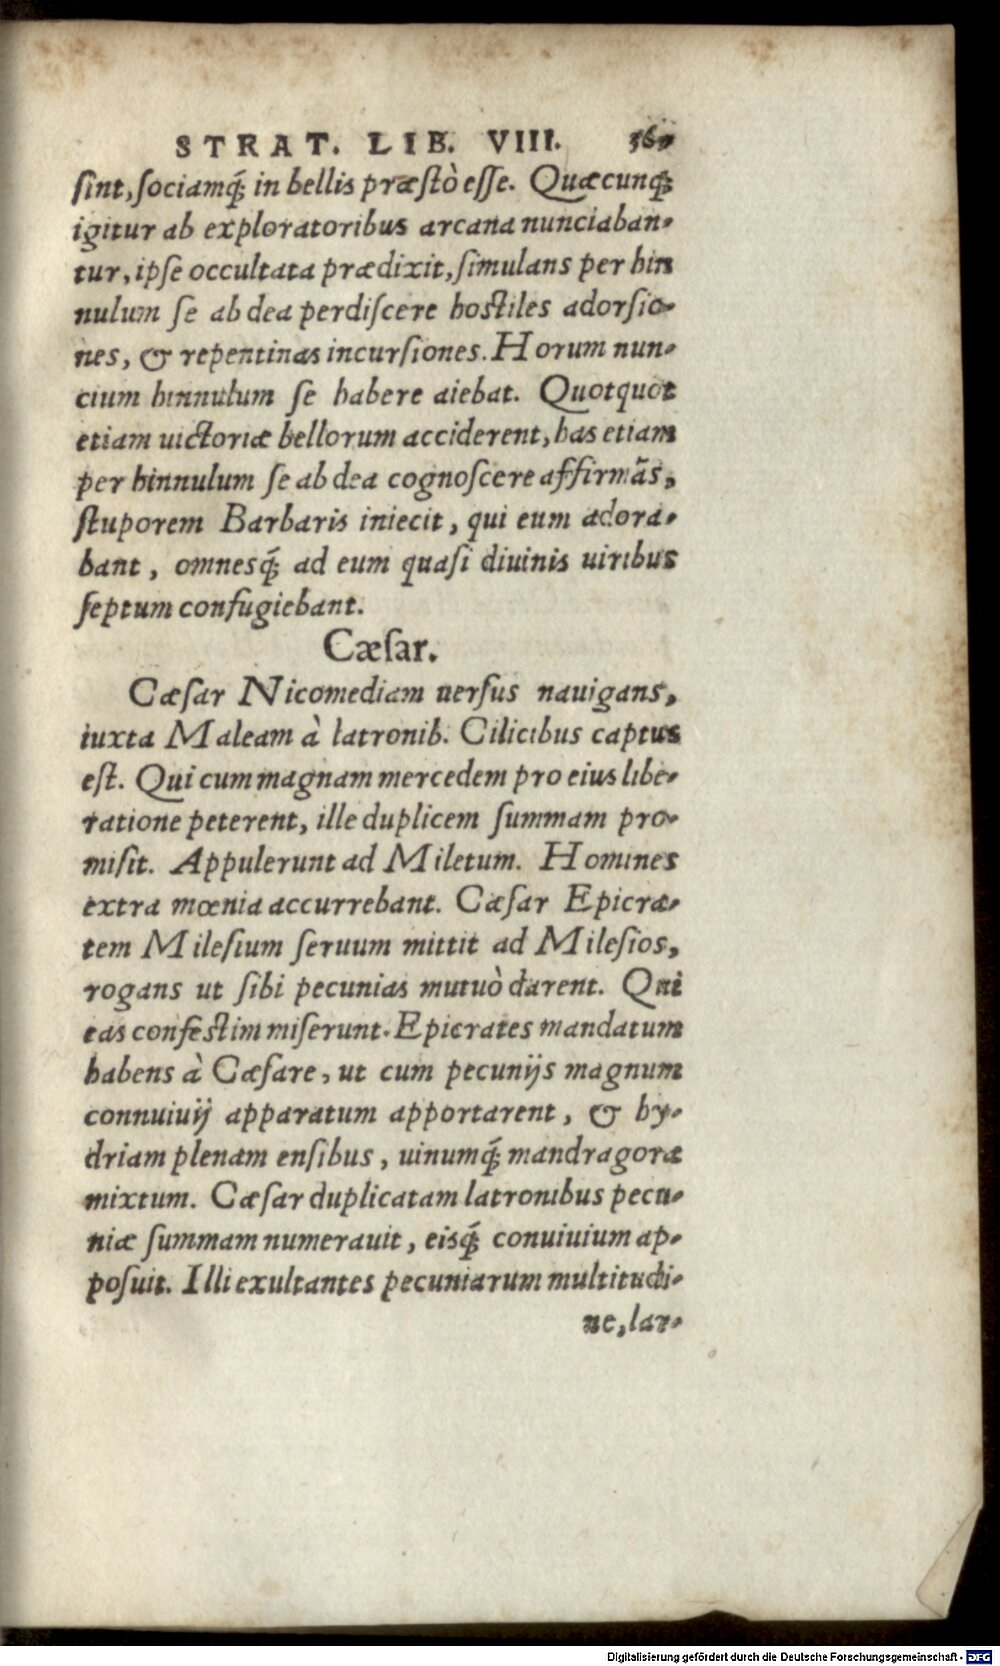 STRAT. LIB. VIII.
sint, sociamq́; in bellis præstò esse. Quæcunq;
igitur ab exploratoribus arcana nunciaban-
tur, ipse occultata prædixit, simulans per hin
nulum se ab dea perdiscere hostiles adorsio-
nes, & repentinas incursiones. Horum nun-
cium hinnulum se habere aiebat. Quotquot
etiam uictoriæ bellorum acciderent, has etiam
per hinnulum se ab dea cognoscere affirmãs,
stuporem Barbaris iniecit, qui eum adora-
bant, omnesq́; ad eum quasi diuinis uiribus
septum confugiebant.
Cæsar.
Cæsar Nicomediam uersus nauigans,
iuxta Maleam à latronib. Cilicibus captus
est. Qui cum magnam mercedem pro eius libe-
ratione peterent, ille duplicem summam pro-
misit. Appulerunt ad Miletum. Homines
extra mœnia accurrebant. Cæsar Epicra-
tem Milesium seruum mittit ad Milesios,
rogans ut sibi pecunias mutuò darent. Qui
eas confestim miserunt. Epicrates mandatum
habens à Cæsare, ut cum pecunijs magnum
connuiuij apparatum apportarent, & hy-
driam plenam ensibus, uinumq́; mandragora
mixtum. Cæsar duplicatam latronibus pecu-
niæ summam numerauit, eisq́; conuiuium ap-
posuit. Illi exultantes pecuniarum multitudi-
ne, lar-
Digitalisierung gefördert durch die Deutsche Forschungsgemeinschaft - DFG